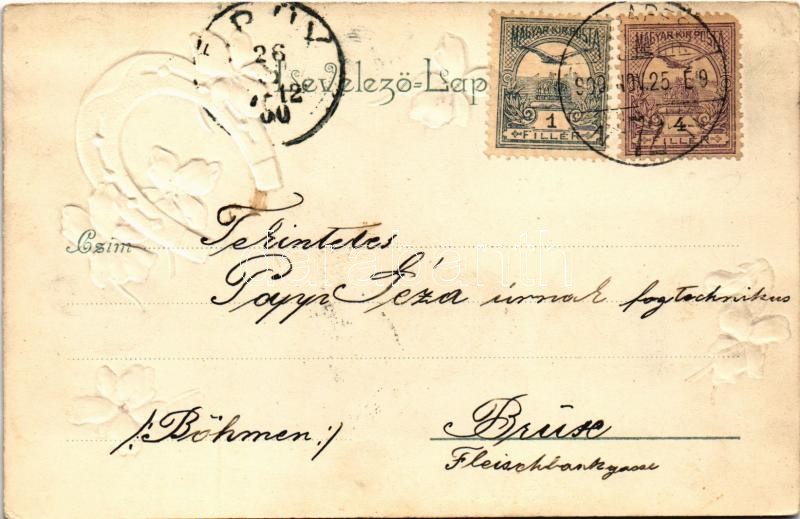 26
12
00
Levelező-Lap
MAGYAR KIR. POSTA
1
FILLÉR
MAGYAR KIR. POSTA
4
FILLÉR
909 NOV. 25 É 9
72
Czim
Tekintetes
Papp Géza úrnak fogtechnikus
/:Böhmen:/
Brüx
Fleischbankgasse